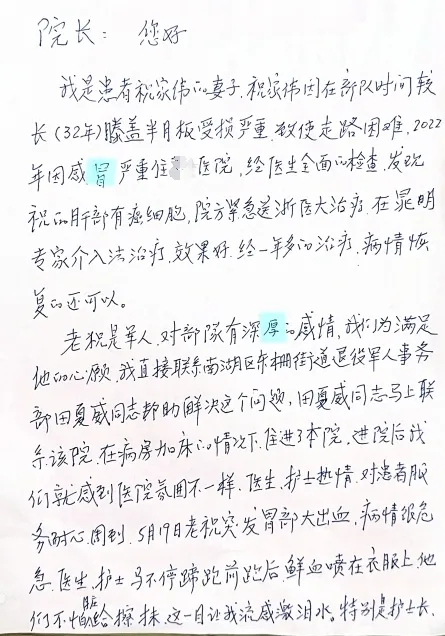 院长：您好
我是患者祝家伟的妻子.祝家伟因在部队时间较
长(32年)膝盖半月板受损严重.致使走路困难.2022
年因感冒严重住医院,经医生全面的检查.发现
祝的肝部有癌细胞,院方紧急送浙医大治疗.在晁明
专家介入法治疗,效果好.经一年多的治疗.病情恢
复的还可以。
老祝是军人.对部队有深厚的感情,我们为满足
他的心愿,我直接联系南湖区东栅街道退役军人事务
部田夏威同志帮助解决这个问题,田夏威同志马上联
系该院.在病房加床的情况下.住进了本院,进院后我
们就感到医院氛围不一样.医生.护士热情.对患者服
务耐心.周到.5月19日老祝突发胃部大出血,病情很危
急.医生.护士马不停蹄跑前跑后,鲜血喷在衣服上.他
们不怕脏给擦抹.这一目让我流感激泪水。特别是护士长.